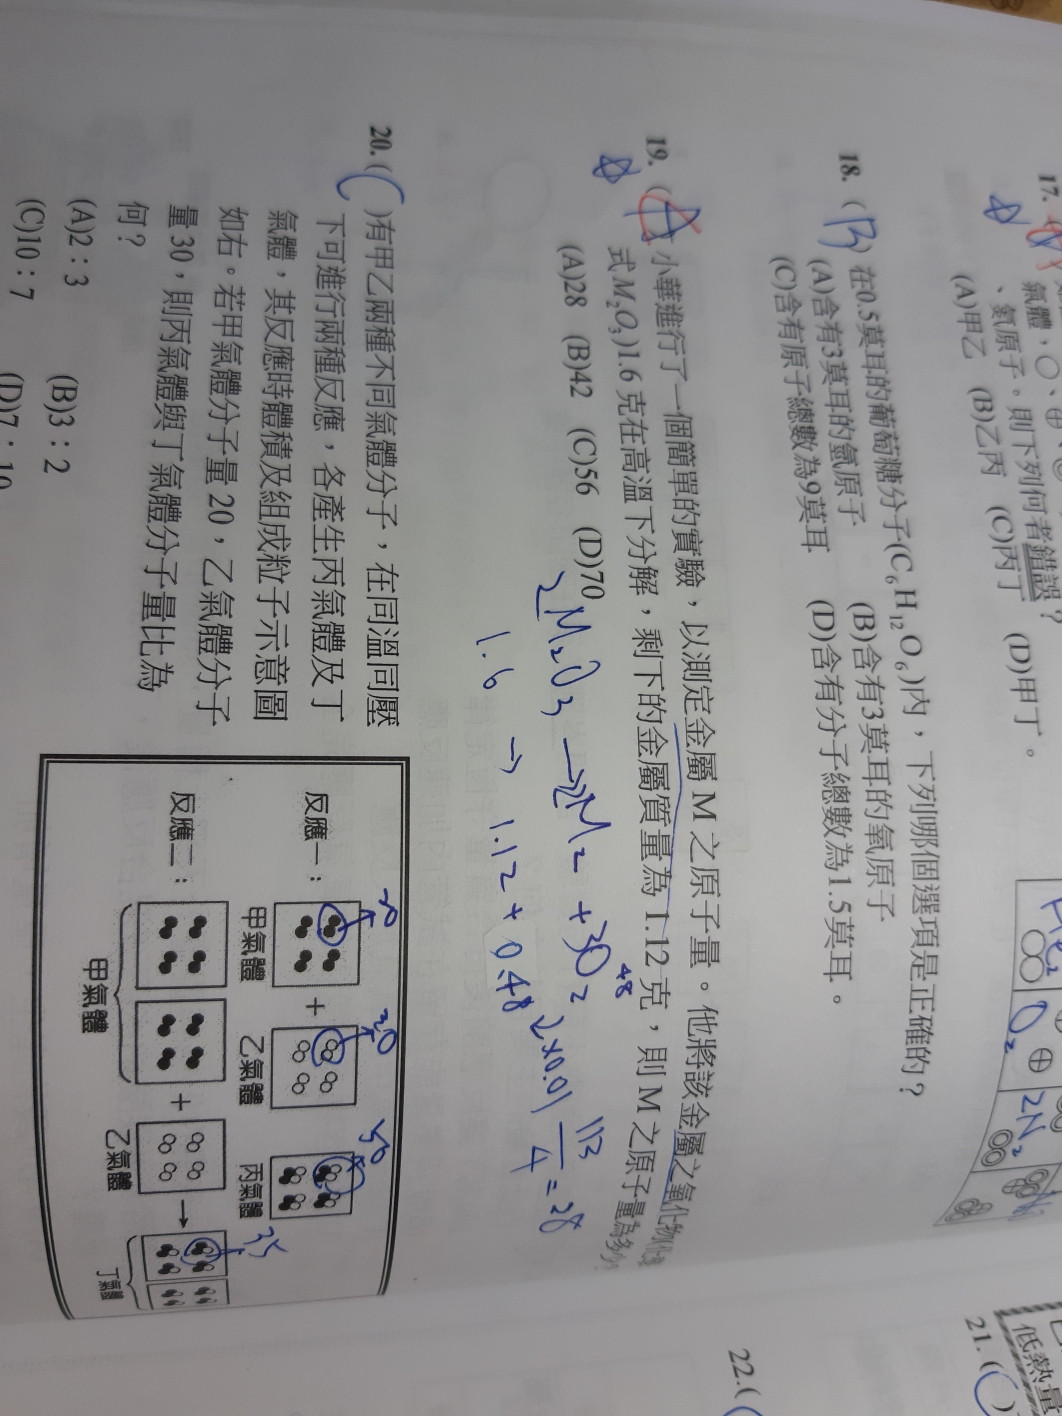 17.
氣體，○、
、氦原子。則下列何者錯誤？
(A)甲乙 (B)乙丙 (C)丙丁 (D)甲丁。
O₂
2N₂
18. (B) 在0.5莫耳的葡萄糖分子(C₆H₁₂O₆)內，下列哪個選項是正確的？
(A)含有3莫耳的氫原子 (B)含有3莫耳的氧原子
(C)含有原子總數為9莫耳 (D)含有分子總數為1.5莫耳。
19. (A) 小華進行了一個簡單的實驗，以測定金屬 M 之原子量。他將該金屬之氧化物(化學
式M₂O₃)1.6 克在高溫下分解，剩下的金屬質量為 1.12 克，則 M 之原子量為多少
(A)28 (B)42 (C)56 (D)70
2M₂O₃ → 2M₂ + 3O₂
48
1.6 → 1.12 + 0.48
2×0.01
112
4
= 28
20. (C)有甲乙兩種不同氣體分子，在同溫同壓
下可進行兩種反應，各產生丙氣體及丁
氣體，其反應時體積及組成粒子示意圖
如右。若甲氣體分子量 20，乙氣體分子
量 30，則丙氣體與丁氣體分子量比為
何？
(A)2：3 (B)3：2
(C)10：7 (D)7：10
20
30
50
反應一：
+
甲氣體 乙氣體 丙氣體
35
反應二：
+ →
甲氣體 乙氣體 丁氣體
低熱量
21. (
22.(